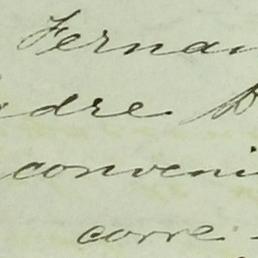 Fernan
adre D
conveni
corre-